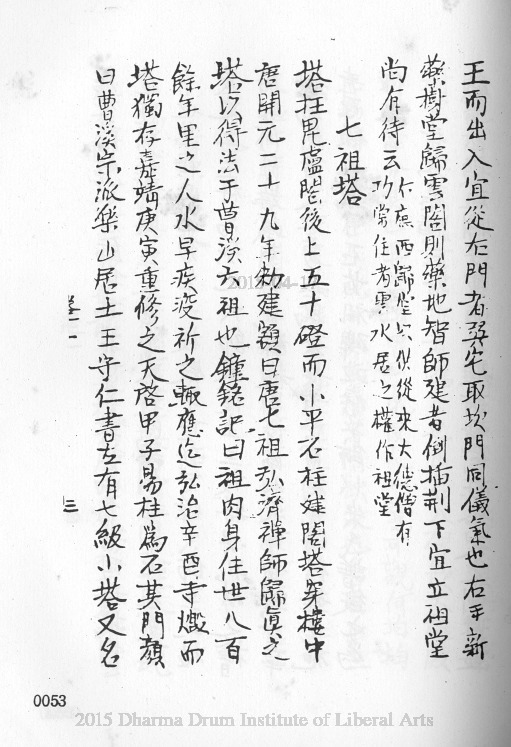 王而出入宜從右門者巽宅取坎門同儀氣也右手新
藥樹堂歸雲閣則藥地智師建昔倒插荆下宜立祖堂
尚有待云
今應西歸堂只供從來大德僧有
功常住者雲水居之權作祖堂
七祖塔
塔在毘盧閣後上五十磴而小平石柱建閣塔穿樓中
唐開元二十九年勑建額曰唐七祖弘濟禪師歸眞之
塔以得法于曹溪六祖也鐘銘記曰祖肉身住世八百
餘年里之人水旱疾疫祈之輒應迄弘治辛酉寺燬而
塔獨存嘉靖庚寅重修之天啓甲子易柱爲石其門額
曰曹溪宗派樂山居士王守仁書左有七級小塔又名
卷一
三
0053
2015 Dharma Drum Institute of Liberal Arts